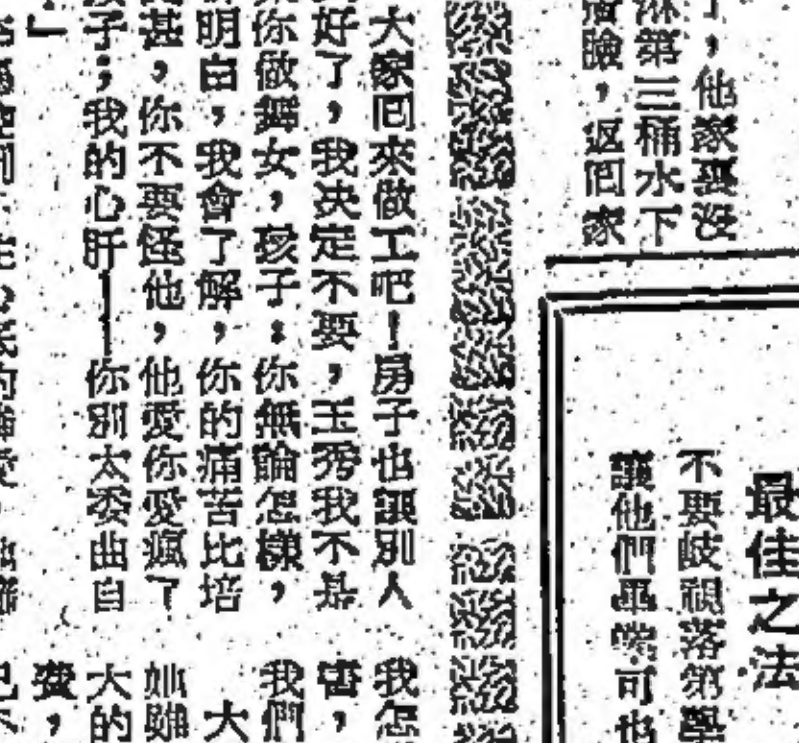 了，他家裏沒
淋第三桶水下
臉，返回家
最佳之法
不要歧視落第學
讓他們畢業可也
大家回來做工吧！房子也讓別人
好了，我決定不要，玉秀我不是
你做舞女，孩子：你無論怎樣，
明白，我會了解，你的痛苦比培
甚，你不要怪他，他愛你愛瘋了
子；我的心肝——你別太委曲自
」
我怎
害，
我們
大
她
大的